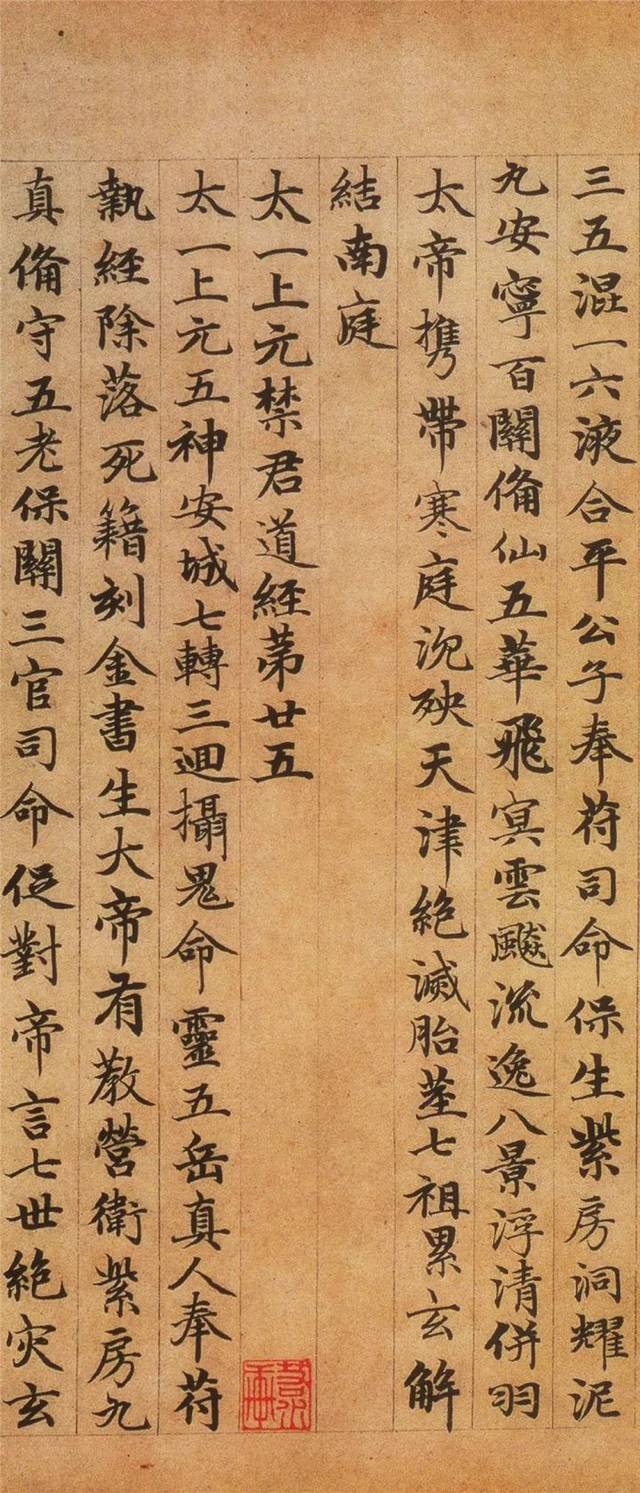 三五混一六液合平公子奉苻司命保生紫房洞耀泥
丸安寧百關俻仙五華飛寘雲飈流逸八景浮清併羽
太帝攜帶寒庭沉殃天津絶滅胎莖七祖累玄解
結南庭
太一上元禁君道經苐廿五
太一上元五神安城七轉三迴攝鬼命靈五岳真人奉苻
執經除落死籍刻金書生大帝有教營衛紫房九
真俻守五老保關三官司命促對帝言七世絶灾玄